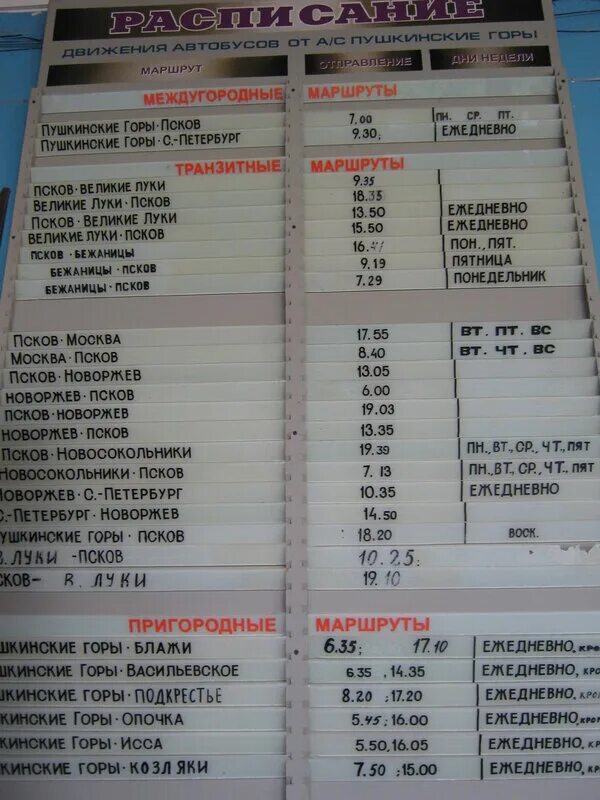 РАСПИСАНИЕ
ДВИЖЕНИЯ АВТОБУСОВ ОТ А/С ПУШКИНСКИЕ ГОРЫ
МАРШРУТ ОТПРАВЛЕНИЕ ДНИ НЕДЕЛИ
МЕЖДУГОРОДНЫЕ МАРШРУТЫ
ПУШКИНСКИЕ ГОРЫ-ПСКОВ 7.00 ПН. СР. ПТ.
ПУШКИНСКИЕ ГОРЫ-С.-ПЕТЕРБУРГ 9.30; ЕЖЕДНЕВНО
ТРАНЗИТНЫЕ МАРШРУТЫ
ПСКОВ-ВЕЛИКИЕ ЛУКИ 9.35
ВЕЛИКИЕ ЛУКИ-ПСКОВ 18.35
ПСКОВ-ВЕЛИКИЕ ЛУКИ 13.50 ЕЖЕДНЕВНО
ВЕЛИКИЕ ЛУКИ-ПСКОВ 15.50 ЕЖЕДНЕВНО
ПСКОВ-БЕЖАНИЦЫ ПОН., ПЯТ.
БЕЖАНИЦЫ-ПСКОВ 9.19 ПЯТНИЦА
БЕЖАНИЦЫ-ПСКОВ 7.29 ПОНЕДЕЛЬНИК
ПСКОВ-МОСКВА 17.55 ВТ. ПТ. ВС
МОСКВА-ПСКОВ 8.40 ВТ. ЧТ. ВС
ПСКОВ-НОВОРЖЕВ 13.05
НОВОРЖЕВ-ПСКОВ 6.00
ПСКОВ-НОВОРЖЕВ 19.03
НОВОРЖЕВ-ПСКОВ 13.35
ПСКОВ-НОВОСОКОЛЬНИКИ 19.39 ПН., ВТ., СР., ЧТ., ПЯТ
НОВОСОКОЛЬНИКИ-ПСКОВ 7.13 ПН., ВТ., СР., ЧТ., ПЯТ
НОВОРЖЕВ-С.-ПЕТЕРБУРГ 10.35 ЕЖЕДНЕВНО
С.-ПЕТЕРБУРГ-НОВОРЖЕВ 14.50
УШКИНСКИЕ ГОРЫ-ПСКОВ 18.20 ВОСК.
В.ЛУКИ -ПСКОВ 10.25;
СКОВ- В.ЛУКИ 19.10
ПРИГОРОДНЫЕ МАРШРУТЫ
ШКИНСКИЕ ГОРЫ-БЛАЖИ 6.35; 17.10 ЕЖЕДНЕВНО, КРО
ШКИНСКИЕ ГОРЫ-ВАСИЛЬЕВСКОЕ 6.35, 14.35 ЕЖЕДНЕВНО, КРО
ШКИНСКИЕ ГОРЫ-ПОДКРЕСТЬЕ 8.20; 17.20 ЕЖЕДНЕВНО, КРОМ
ШКИНСКИЕ ГОРЫ-ОПОЧКА 5.45; 16.00 ЕЖЕДНЕВНО, КРОМ
ШКИНСКИЕ ГОРЫ-ИССА 5.50, 16.05 ЕЖЕДНЕВНО, КРО
КИНСКИЕ ГОРЫ-КОЗЛЯКИ 7.50; 15.00 ЕЖЕДНЕВНО, КРО